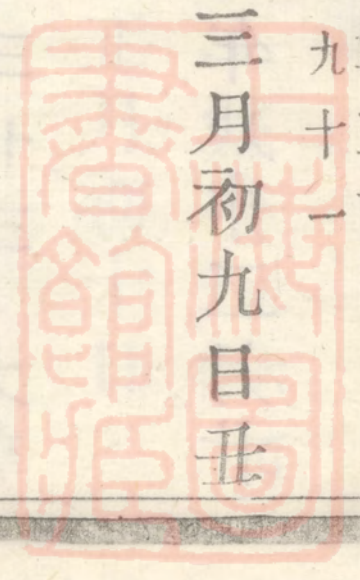 九十一
三月初九日丑
上海圖
書館藏